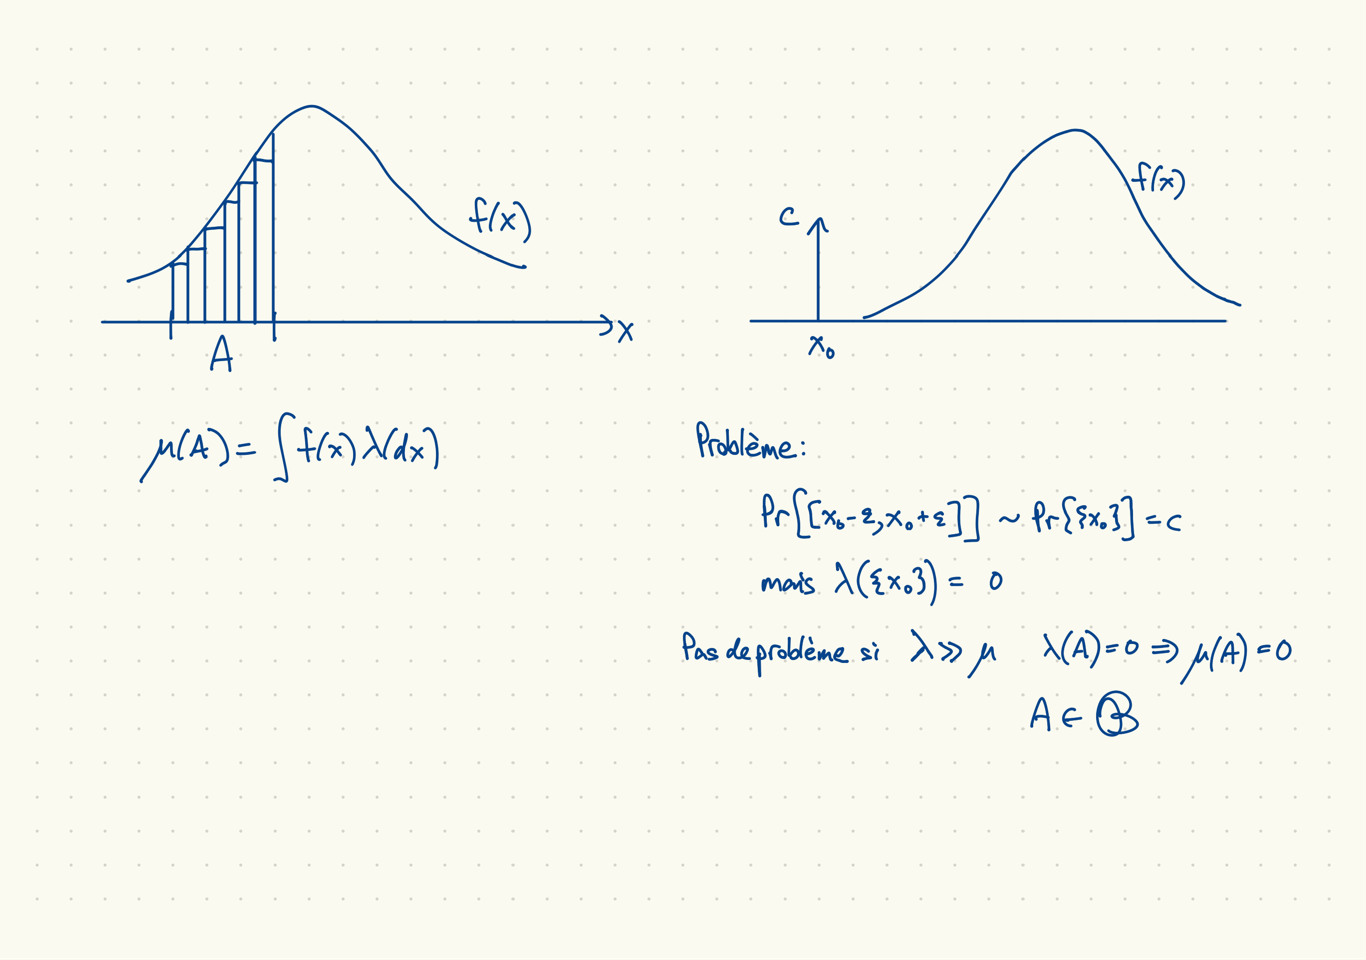 f(x)
x
A
μ(A) = ∫ f(x) λ(dx)
c
f(x)
x₀
Problème :
Pr[[x₀-ε, x₀+ε]] ~ Pr[{x₀}] = c
mais λ({x₀}) = 0
Pas de problème si λ ≫ μ λ(A)=0 ⇒ μ(A)=0
A ∈ ℬ